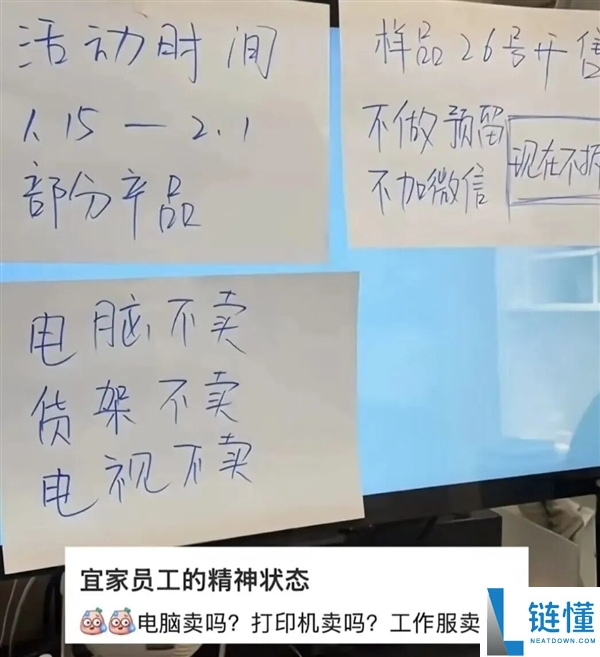 活动时间
1.15 — 2.1
部分产品
样品26号开售
不做预留
不加微信
现在不拆
电脑不卖
货架不卖
电视不卖
宜家员工的精神状态
电脑卖吗？打印机卖吗？工作服卖
链懂
NEATDOWN.COM